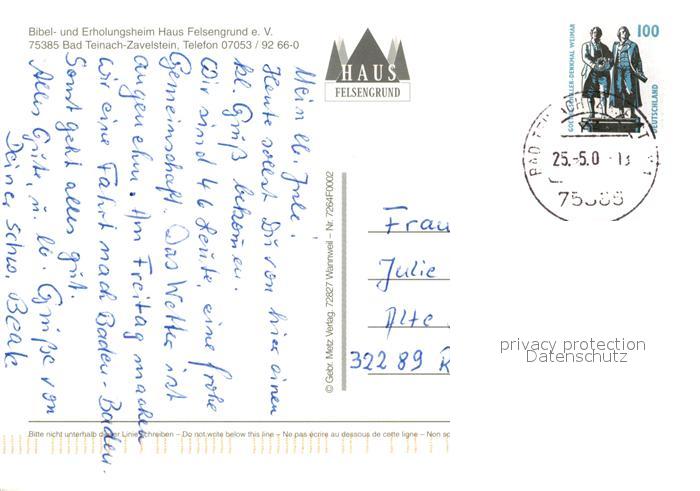 Bibel- und Erholungsheim Haus Felsengrund e. V.
75385 Bad Teinach-Zavelstein, Telefon 07053 / 92 66-0
HAUS
FELSENGRUND
Mein lb. Jule!
Heute sollst Du von hier einen
kl. Gruß bekommen.
Wir sind 46 Leute, eine frohe
Gemeinschaft. Das Wetter ist
angenehm. Am Freitag machen
wir eine Fahrt nach Baden-Baden.
Sonst geht alles gut.
Alles Gute, u. lb. Grüße von
Deiner Schw. Beate
© Gebr. Metz Verlag, 72827 Wannweil – Nr. 7264F0002
100
GOETHE-SCHILLER-DENKMAL WEIMAR
DEUTSCHLAND
25.-5.0
75385
Frau
Julie
Alte
32289 R
privacy protection
Datenschutz
Bitte nicht unterhalb dieser Linie schreiben – Do not wrote below this line – Ne pas écrire au dessous de cette ligne – Non sc